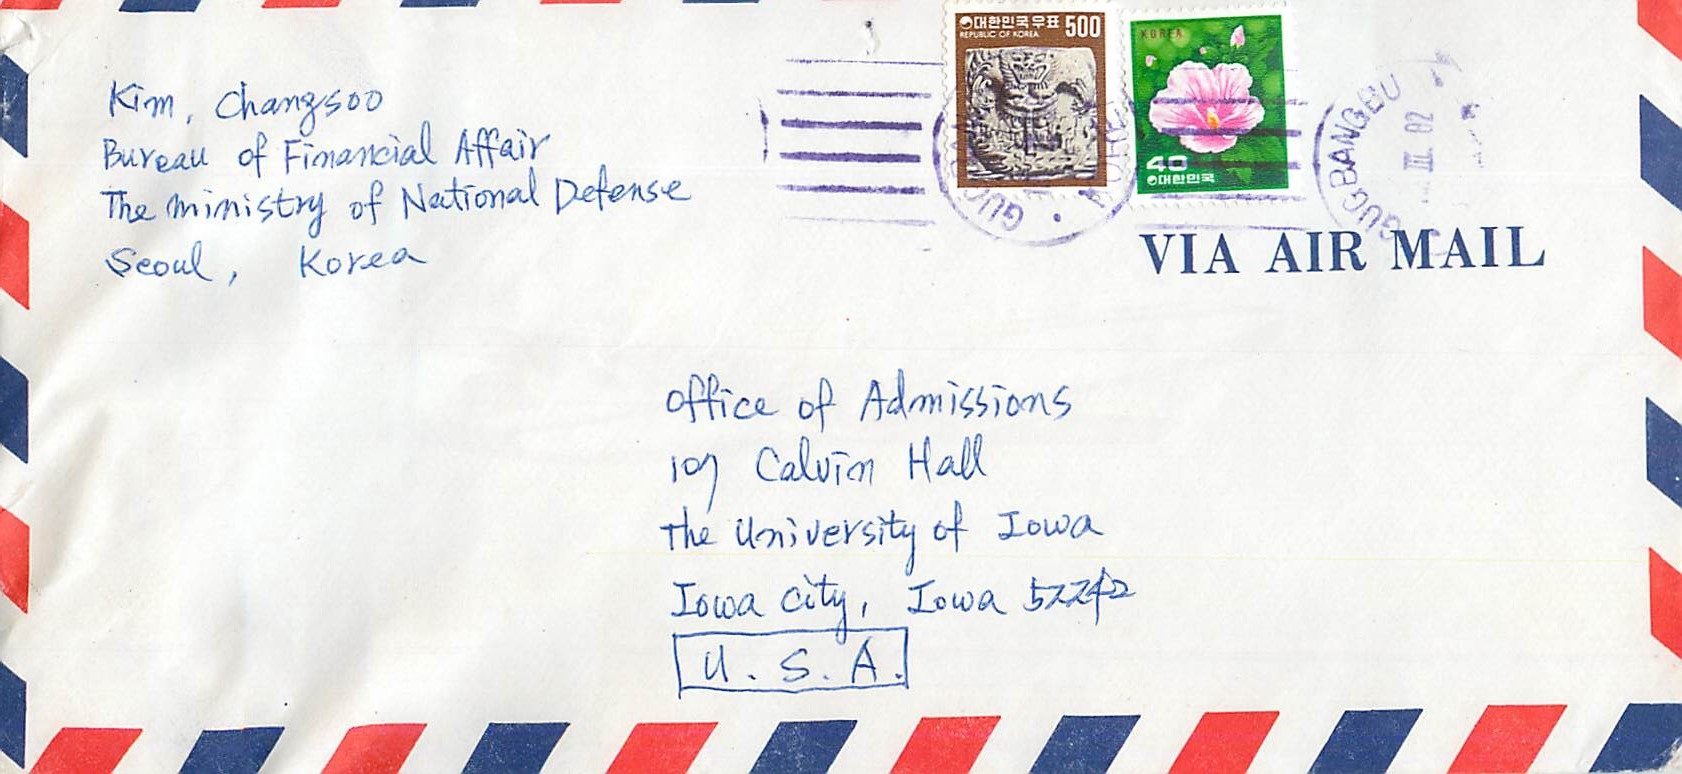 Kim, Changsoo
Bureau of Financial Affair
The Ministry of National Defense
Seoul, Korea
대한민국우표 500
REPUBLIC OF KOREA
KOREA
40
대한민국
GUGBANGBU
III. 82
VIA AIR MAIL
Office of Admissions
107 Calvin Hall
The University of Iowa
Iowa City, Iowa 52242
U. S. A.